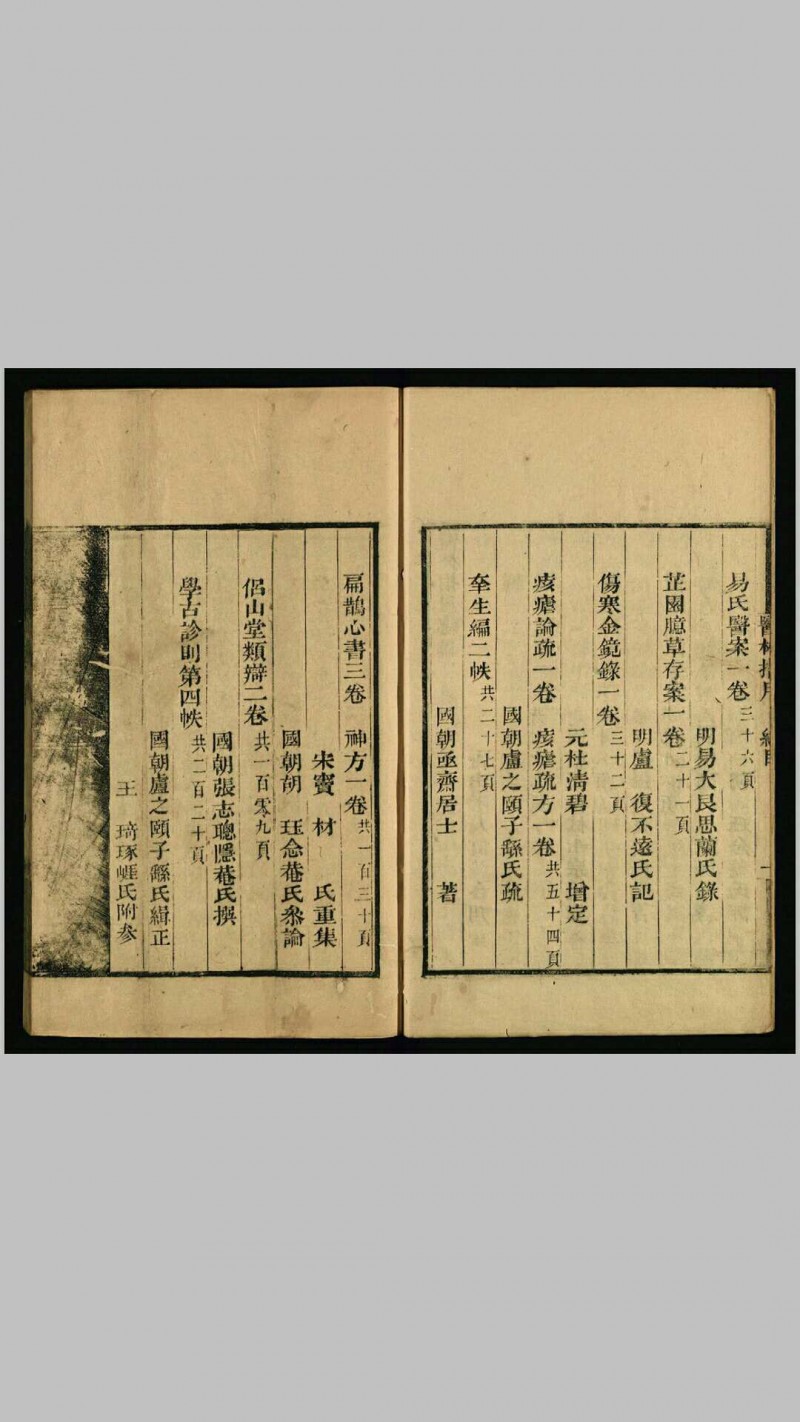 醫林指月 總目 一
易氏醫案一卷 三十六頁
明易大艮思蘭氏錄
芷園臆草存案一卷 二十一頁
明盧 復不遠氏記
傷寒金鏡錄一卷 三十二頁
元杜清碧 增定
痎瘧論疏一卷 痎瘧疏方一卷 共五十四頁
國朝盧之頤子繇氏疏
㚻生編二帙 共二十七頁
國朝亟齋居士 著
扁鵲心書三卷 神方一卷 共一百三十頁
宋竇 材 氏重集
國朝胡 珏念菴氏叅論
侶山堂類辯二卷 共一百零九頁
國朝張志聰隱菴氏撰
學古診則第四帙 共二百二十頁
國朝盧之頤子繇氏緝正
王 琦琢崕氏附參